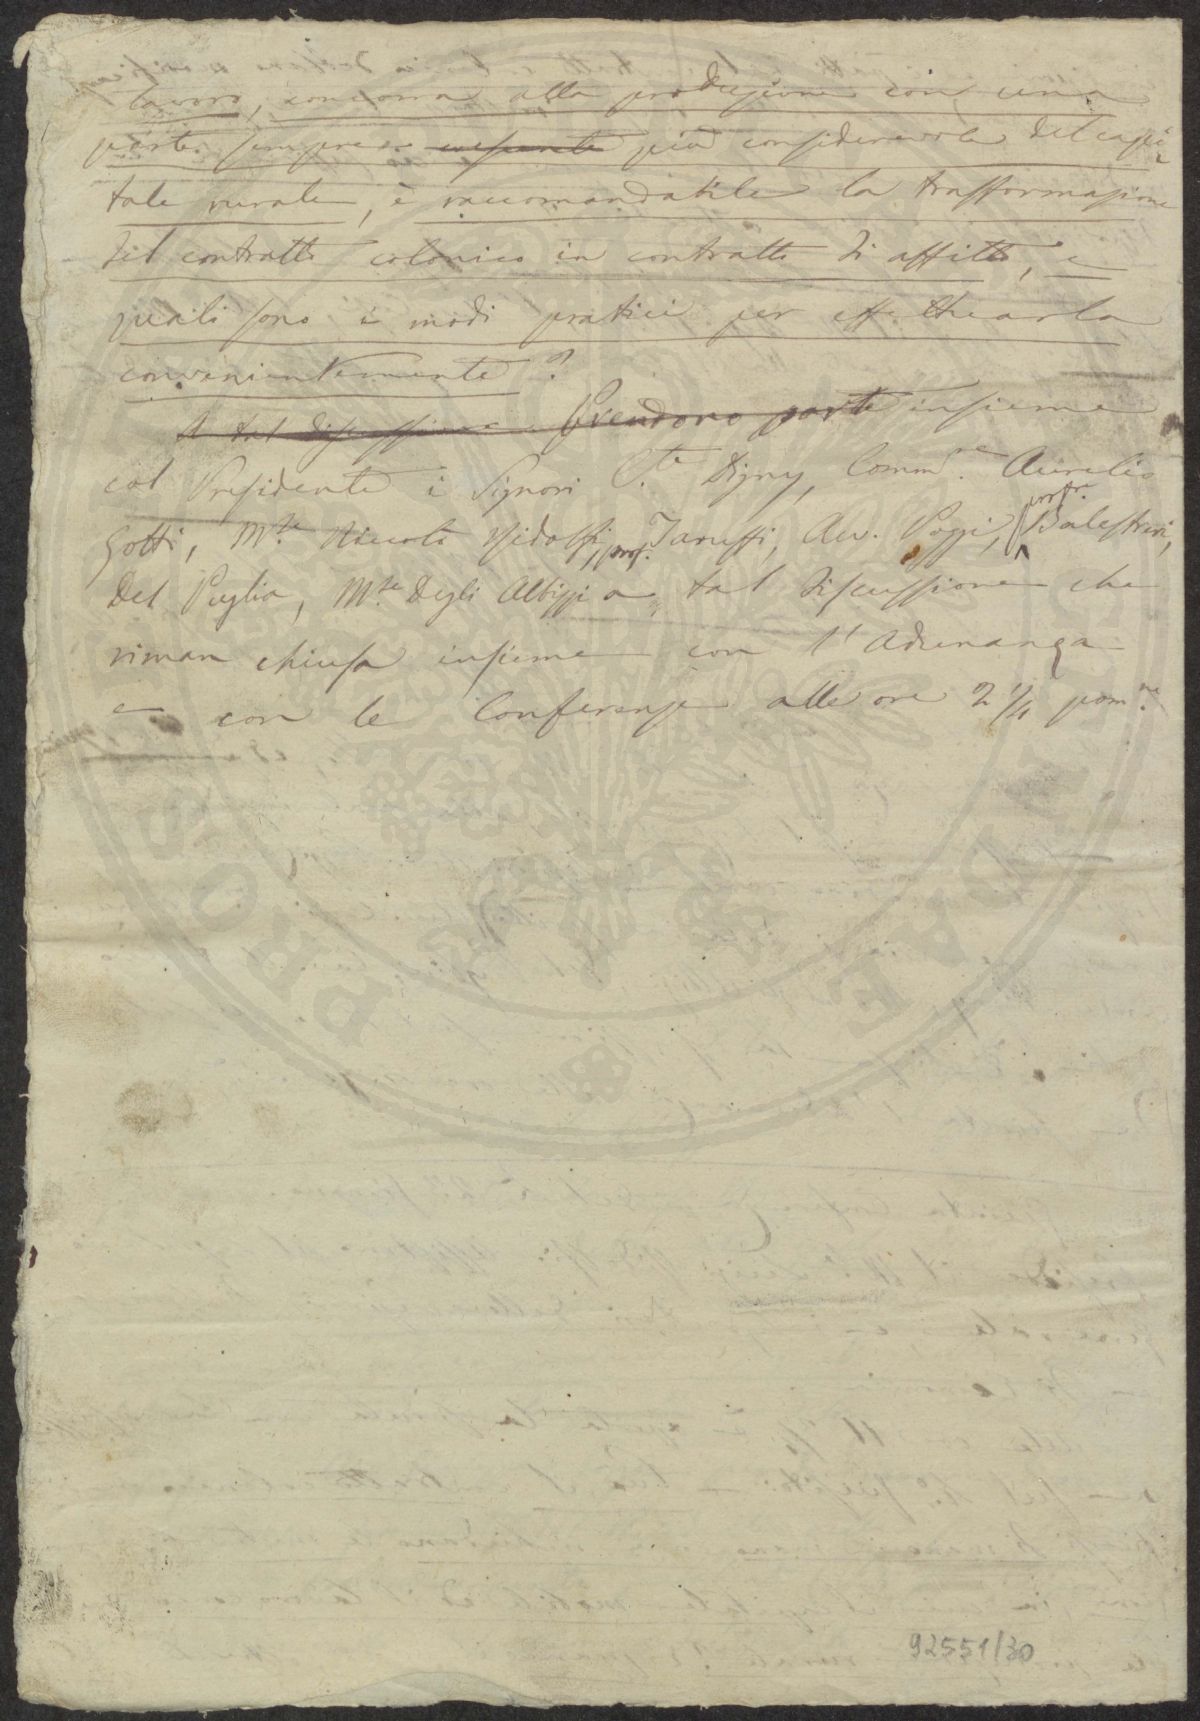 lavoro, concorra alla produzione con una
parte sempre crescente più considerevole del capi-
tale rurale, è raccomandabile la trasformazione
del contratto colonico in contratto di affitto, e
quali sono i modi pratici per effettuarla
convenientemente?
A tal discussione Prendono parte insieme
col Presidente i Signori C.te Digny, Comm.e Aurelio
Gotti, M.se Niccolò Ridolfi, prof. Caruso, Avv. Poggi, profr. Balestreri,
Del Puglia, M.se Degli Albizzi a tal discussione che
riman chiusa insieme con l'Adunanza
e con le Conferenze alle ore 2 1/4 pom.ne
92551/30